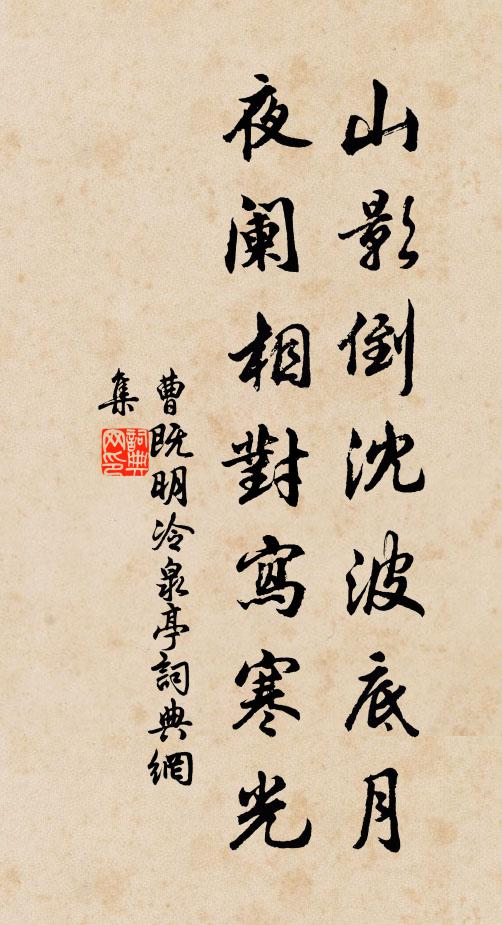 山影倒沈波底月
夜阑相對寫寒光
曹既明冷泉亭詞典網
集
詞典
网印